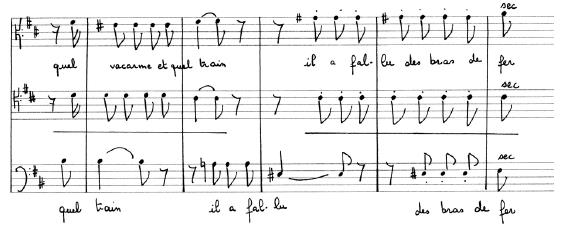 sec
quel vacarme et quel train il a fal-lu des bras de fer
sec
sec
quel train il a fal-lu des bras de fer